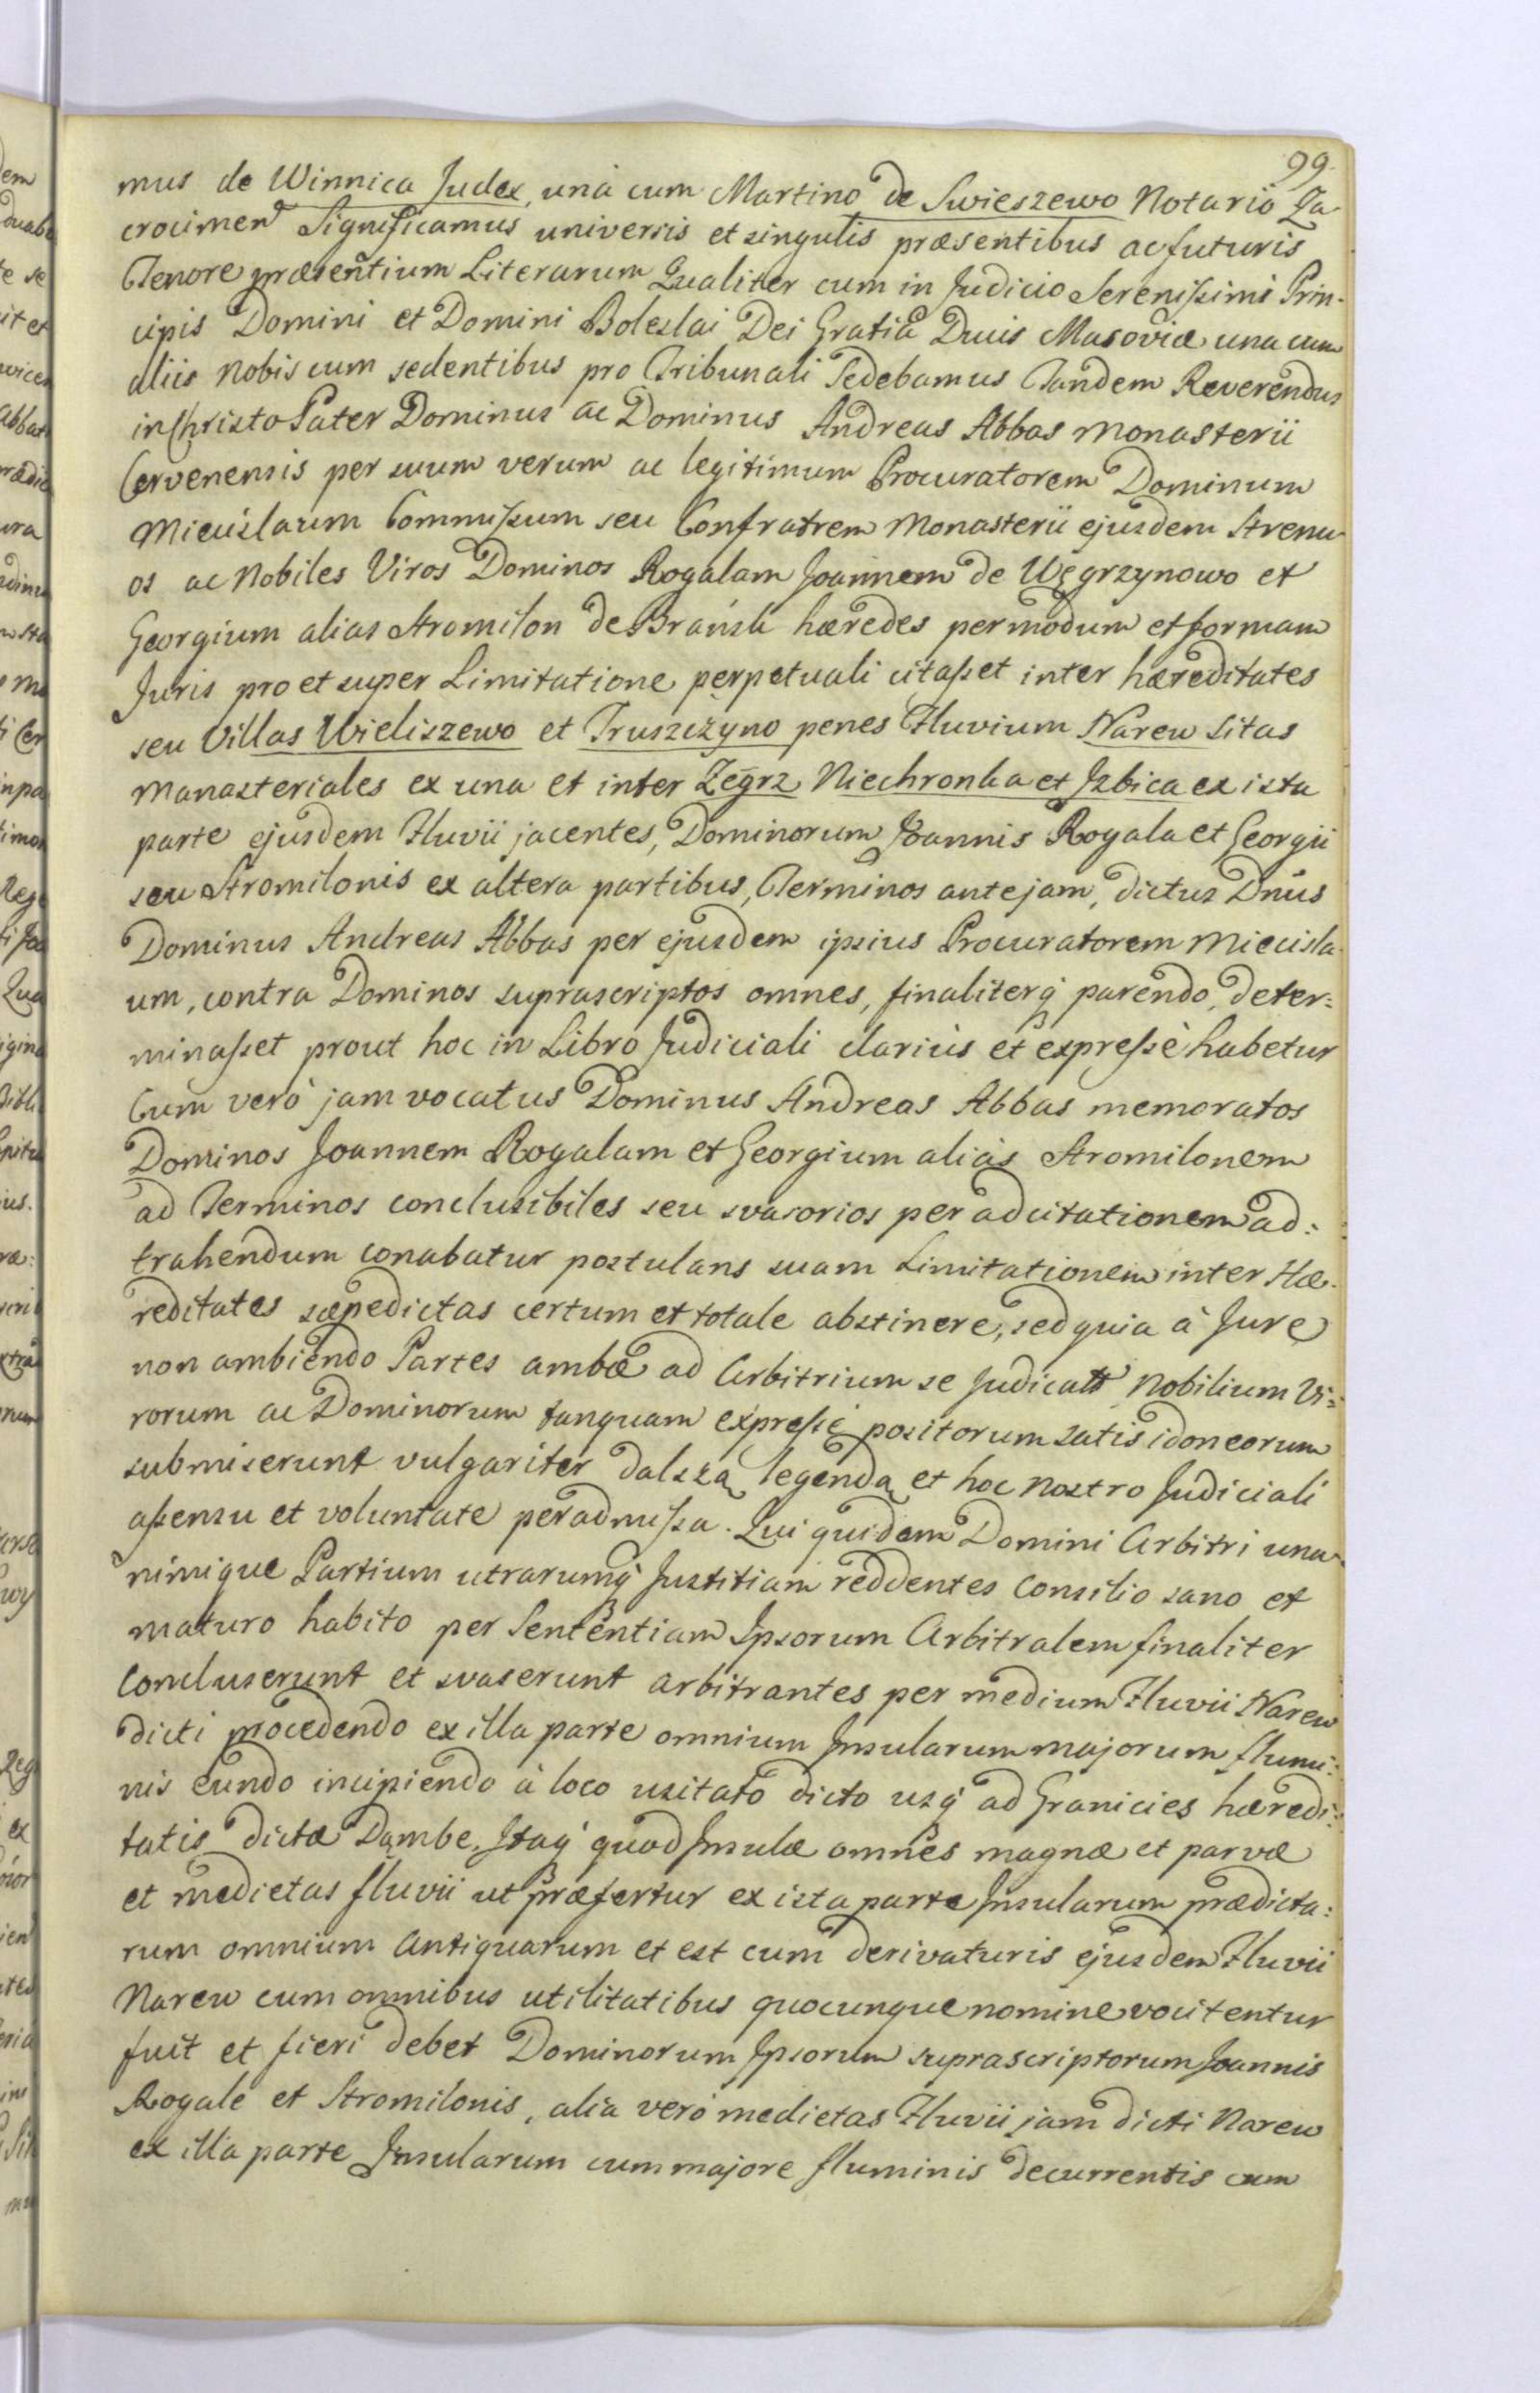 99.
mus de Winnica Judex, unà cum Martino de Swieszewo Notario Za
crocimen Significamus universis et singulis præsentibus ac futuris
Tenore præsentium Literarum Qualiter cum in Judicio Serenißimi Prin-
cipis Domini et Domini Boleslai Dei Gratiâ Ducis Masoviæ una cum
aliis nobis cum sedentibus pro Tribunali Sedebamus Tandem Reverendus
in Christo Pater Dominus ac Dominus Andreas Abbas Monasterii
Cervenensis per suum verum ac legitimum Procuratorem Dominum
Miecislaum Commißum seu Confratrem Monasterii ejusdem Strenu
os ac Nobiles Viros Dominos Rogalam Joannem de Węgrzynowo et
Georgium alias Stromilon de Brańsk hæredes per modum et formam
Juris pro et super Limitatione perpetuali citaßet inter hæreditates
seu Villas Wieliszewo et Truszczyno penes Fluvium Narew sitas
Manasteriales ex una et inter Zegrz Niechronka et Izbica ex ista
parte ejusdem Fluvii jacentes, Dominorum Joannis Rogala et Georgii
seu Stromilonis ex altera partibus, Terminos ante jam, dictus Dnus
Dominus Andreas Abbas per ejusdem ipsius Procuratorem Miecisla
um, contra Dominos suprascriptos omnes, finaliterq parendo, deter=
minaßet prout hoc in Libro Judiciali clariùs et expreßè habetur
Cum verò jam vocatus Dominus Andreas Abbas memoratos
Dominos Joannem Rogalam et Georgium aliàs Stromilonem
ad Terminos conclusibiles seu svasorios per adcitationem ad:
trahendum conabatur postulans suam Limitationem inter Hæ-
reditates sæpedictas certum et totale abstinere, sed quia à Jure
non ambiendo Partes ambæ ad Arbitrium se Judicatt Nobilium Vi:
rorum ac Dominorum tanquam expreßè positorum satis idoneorum
submiserunt vulgariter dalszą legendą et hoc nostro Judiciali
aßensu et voluntate peradmißa. Qui quidem Domini Arbitri una
nimique Partium utrarumq Justitiam reddentes Consilio sano et
maturo habito per Sententiam Ipsorum Arbitralem finaliter
Concluserunt et svaserunt arbitrantes per medium Fluvii Narew
dicti procedendo ex illa parte omnium Insularum majorum flumi:
nis eundo incipiendo à loco usitato dicto usq ad Granicies hæredi:
tatis dictæ Dambe, Itaq quod Insulæ omnes magnæ et parvæ
et medietas fluvii ut præfertur ex ista parte Insularum prædicta:
rum omnium Antiquarum et est cum derivaturis ejusdem Fluvii
Narew cum omnibus utilitatibus quocunque nomine vocitentur
fuit et fieri debet Dominorum Ipsorum suprascriptorum Joannis
Rogale et Stromilonis, alia verò medietas Fluvii jam dicti Narew
ex illa parte Insularum cum majore fluminis decurrentis cum